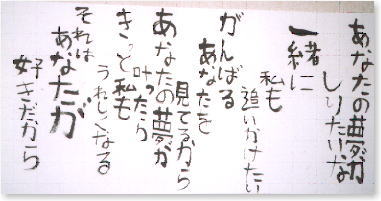 あなたの夢が
しりたいな
一緒に
私も
追いかけたい
がんばる
あなたを
見てるから
あなたの夢が
叶ったら
きっと私も
うれしくなる
それは
あなたが
好きだから